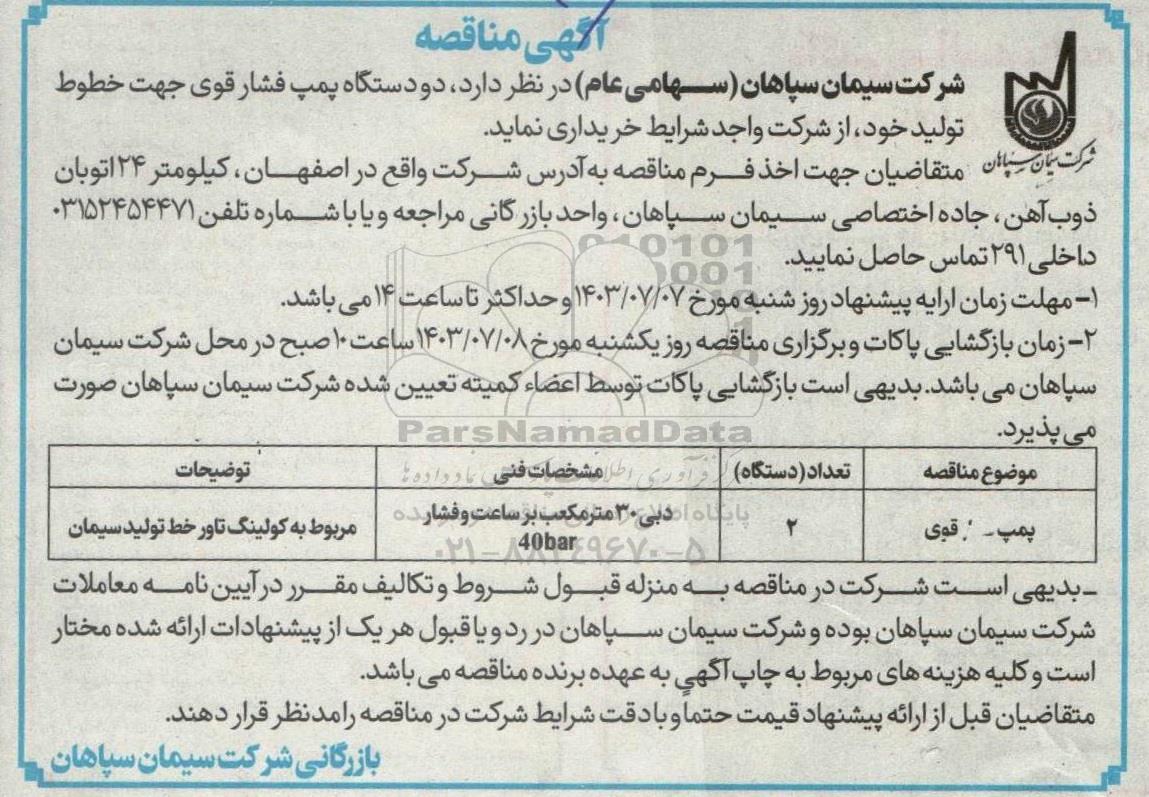 آگهی مناقصه
شرکت سیمان سپاهان (سهامی عام) در نظر دارد، دو دستگاه پمپ فشار قوی جهت خطوط
تولید خود، از شرکت واجد شرایط خریداری نماید.
شرکت سیمان سپاهان
متقاضیان جهت اخذ فرم مناقصه به آدرس شرکت واقع در اصفهان، کیلومتر ۲۴ اتوبان
ذوب‌آهن، جاده اختصاصی سیمان سپاهان، واحد بازرگانی مراجعه و یا با شماره تلفن ۰۳۱۵۲۴۵۴۴۷۱
داخلی ۲۹۱ تماس حاصل نمایید.
۱- مهلت زمان ارایه پیشنهاد روز شنبه مورخ ۱۴۰۳/۰۷/۰۷ و حداکثر تا ساعت ۱۴ می باشد.
۲- زمان بازگشایی پاکات و برگزاری مناقصه روز یکشنبه مورخ ۱۴۰۳/۰۷/۰۸ ساعت ۱۰ صبح در محل شرکت سیمان
سپاهان می باشد. بدیهی است بازگشایی پاکات توسط اعضاء کمیته تعیین شده شرکت سیمان سپاهان صورت
می پذیرد.
ParsNamadData
موضوع مناقصه تعداد (دستگاه) مشخصات فنی توضیحات
پمپ قوی ۲ دبی ۳۰ مترمکعب بر ساعت و فشار 40bar مربوط به کولینگ تاور خط تولید سیمان
۰۲۱-۸۸۳۴۹۶۷۰-۵
ـ بدیهی است شرکت در مناقصه به منزله قبول شروط و تکالیف مقرر در آیین نامه معاملات
شرکت سیمان سپاهان بوده و شرکت سیمان سپاهان در رد و یا قبول هر یک از پیشنهادات ارائه شده مختار
است و کلیه هزینه های مربوط به چاپ آگهی به عهده برنده مناقصه می باشد.
متقاضیان قبل از ارائه پیشنهاد قیمت حتماً و با دقت شرایط شرکت در مناقصه را مدنظر قرار دهند.
بازرگانی شرکت سیمان سپاهان